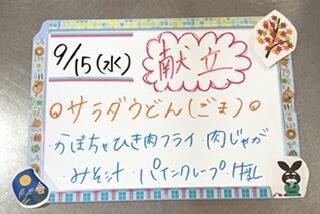 9/15(水) 献立
◎サラダうどん(ごま)◎
・かぼちゃひき肉フライ・肉じゃが
・みそ汁・パインクレープ・牛乳